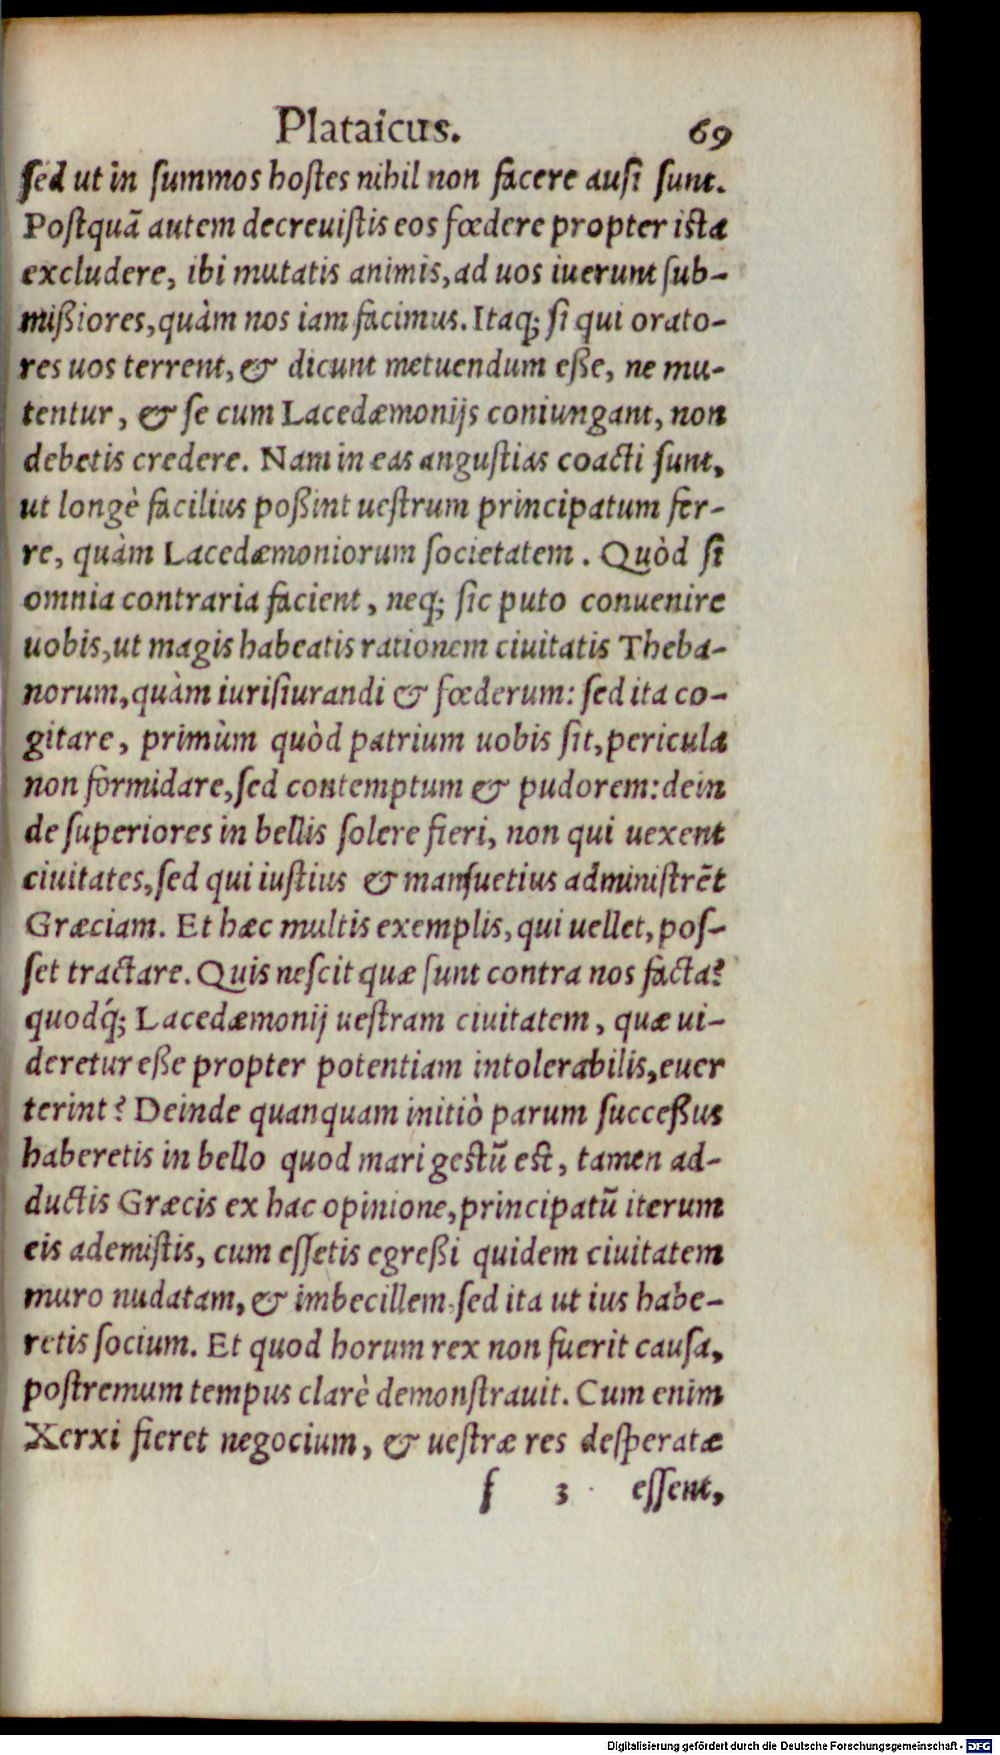 Plataicus. 69
ſed ut in ſummos hoſtes nihil non facere auſi ſunt.
Poſtquã autem decreuiſtis eos fœdere propter iſta
excludere, ibi mutatis animis, ad uos iuerunt ſub-
mißiores, quàm nos iam facimus. Itaq; ſi qui orato-
res uos terrent, & dicunt metuendum eße, ne mu-
tentur, & ſe cum Lacedæmonijs coniungant, non
debetis credere. Nam in eas anguſtias coacti ſunt,
ut longè facilius poßint ueſtrum principatum fer-
re, quàm Lacedæmoniorum ſocietatem. Quòd ſi
omnia contraria facient, neq; ſic puto conuenire
uobis, ut magis habeatis rationem ciuitatis Theba-
norum, quàm iurisiurandi & fœderum: ſed ita co-
gitare, primùm quòd patrium uobis ſit, pericula
non formidare, ſed contemptum & pudorem: dein
de ſuperiores in bellis ſolere fieri, non qui uexent
ciuitates, ſed qui iuſtius & manſuetius adminiſtrẽt
Græciam. Et hæc multis exemplis, qui uellet, poſ-
ſet tractare. Quis neſcit quæ ſunt contra nos facta?
quodq́; Lacedæmonij ueſtram ciuitatem, quæ ui-
deretur eße propter potentiam intolerabilis, euer
terint? Deinde quanquam initiò parum ſucceßus
haberetis in bello quod mari geſtũ eſt, tamen ad-
ductis Græcis ex hac opinione, principatũ iterum
eis ademiſtis, cum eſſetis egreßi quidem ciuitatem
muro nudatam, & imbecillem, ſed ita ut ius habe-
retis ſocium. Et quod horum rex non fuerit cauſa,
poſtremum tempus clarè demonſtrauit. Cum enim
Xerxi fieret negocium, & ueſtræ res deſperatæ
f 3 eſſent,
Digitalisierung gefördert durch die Deutsche Forschungsgemeinschaft - DFG